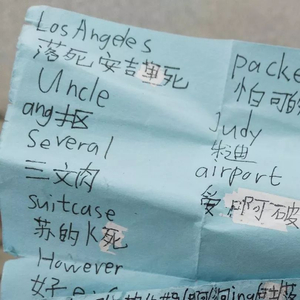 Los Angeles
落死安吉里死
Uncle
ang
Several
三文肉
suitcase
苏的K死
However
好e
packe
怕可的
Judy
朱迪
airport
爱
破